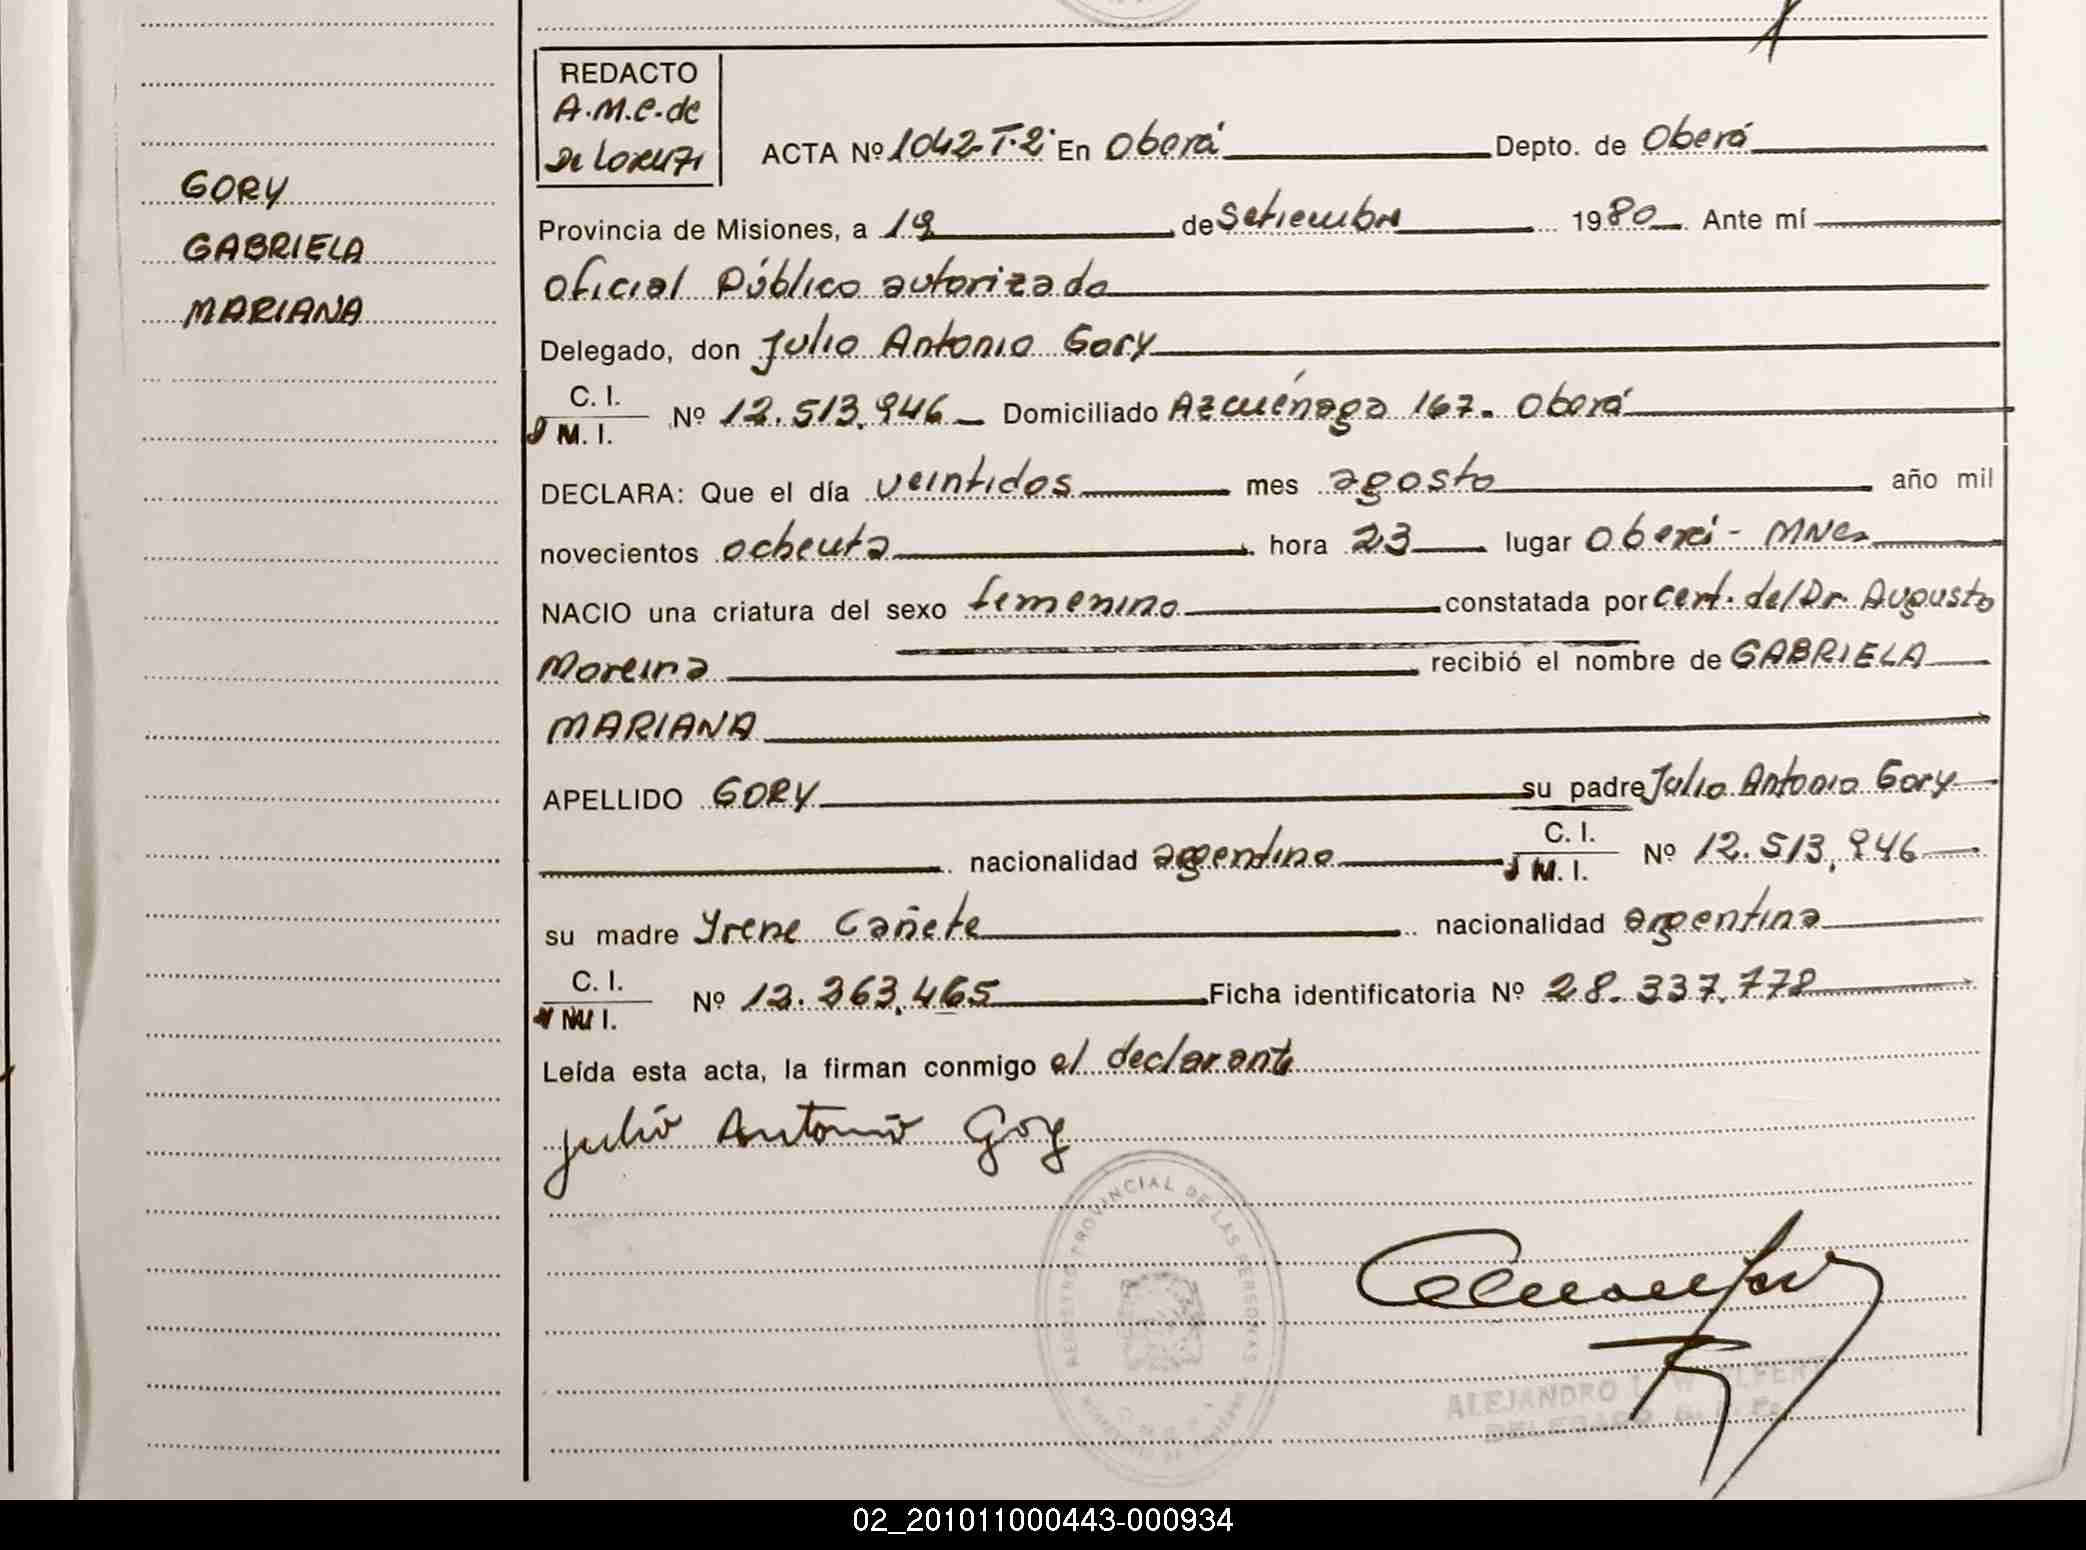 GORY
GABRIELA
MARIANA
REDACTO
A.M.C. de
De Loruzi
ACTA Nº 1042-T.2º En Oberá Depto. de Oberá
Provincia de Misiones, a 19 de Setiembre 1980 Ante mí
Oficial Público autorizado
Delegado, don Julio Antonio Gory
C. I.
M. I. Nº 12.513.946 Domiciliado Azcuénaga 167. Oberá
DECLARA: Que el día veintidos mes agosto año mil
novecientos ochenta hora 23 lugar Oberá - MNes
NACIO una criatura del sexo femenino constatada por cert. del Dr. Augusto
Moreira recibió el nombre de GABRIELA
MARIANA
APELLIDO GORY su padre Julio Antonio Gory
nacionalidad argentino C. I. M. I. Nº 12.513.946
su madre Yrene Cañete nacionalidad argentina
C. I.
I. Nº 12.363.465 Ficha identificatoria Nº 28.337.778
Leída esta acta, la firman conmigo el declarante
Julio Antonio Gory
REGISTRO PROVINCIAL DE LAS PERSONAS
ALEJANDRO
DELEGADO
02_201011000443-000934